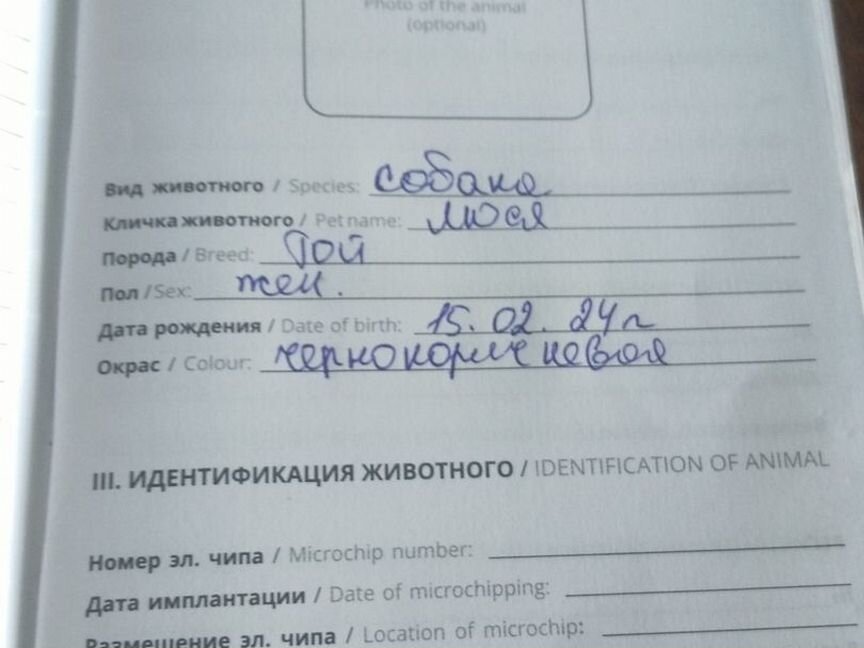 Photo of the animal
(optional)
Вид животного / Species: собака
Кличка животного / Pet name: Люся
Порода / Breed: Той
Пол / Sex: жен.
Дата рождения / Date of birth: 15.02.24г
Окрас / Colour: чернокоричневая
III. ИДЕНТИФИКАЦИЯ ЖИВОТНОГО / IDENTIFICATION OF ANIMAL
Номер эл. чипа / Microchip number:
Дата имплантации / Date of microchipping:
Размещение эл. чипа / Location of microchip: